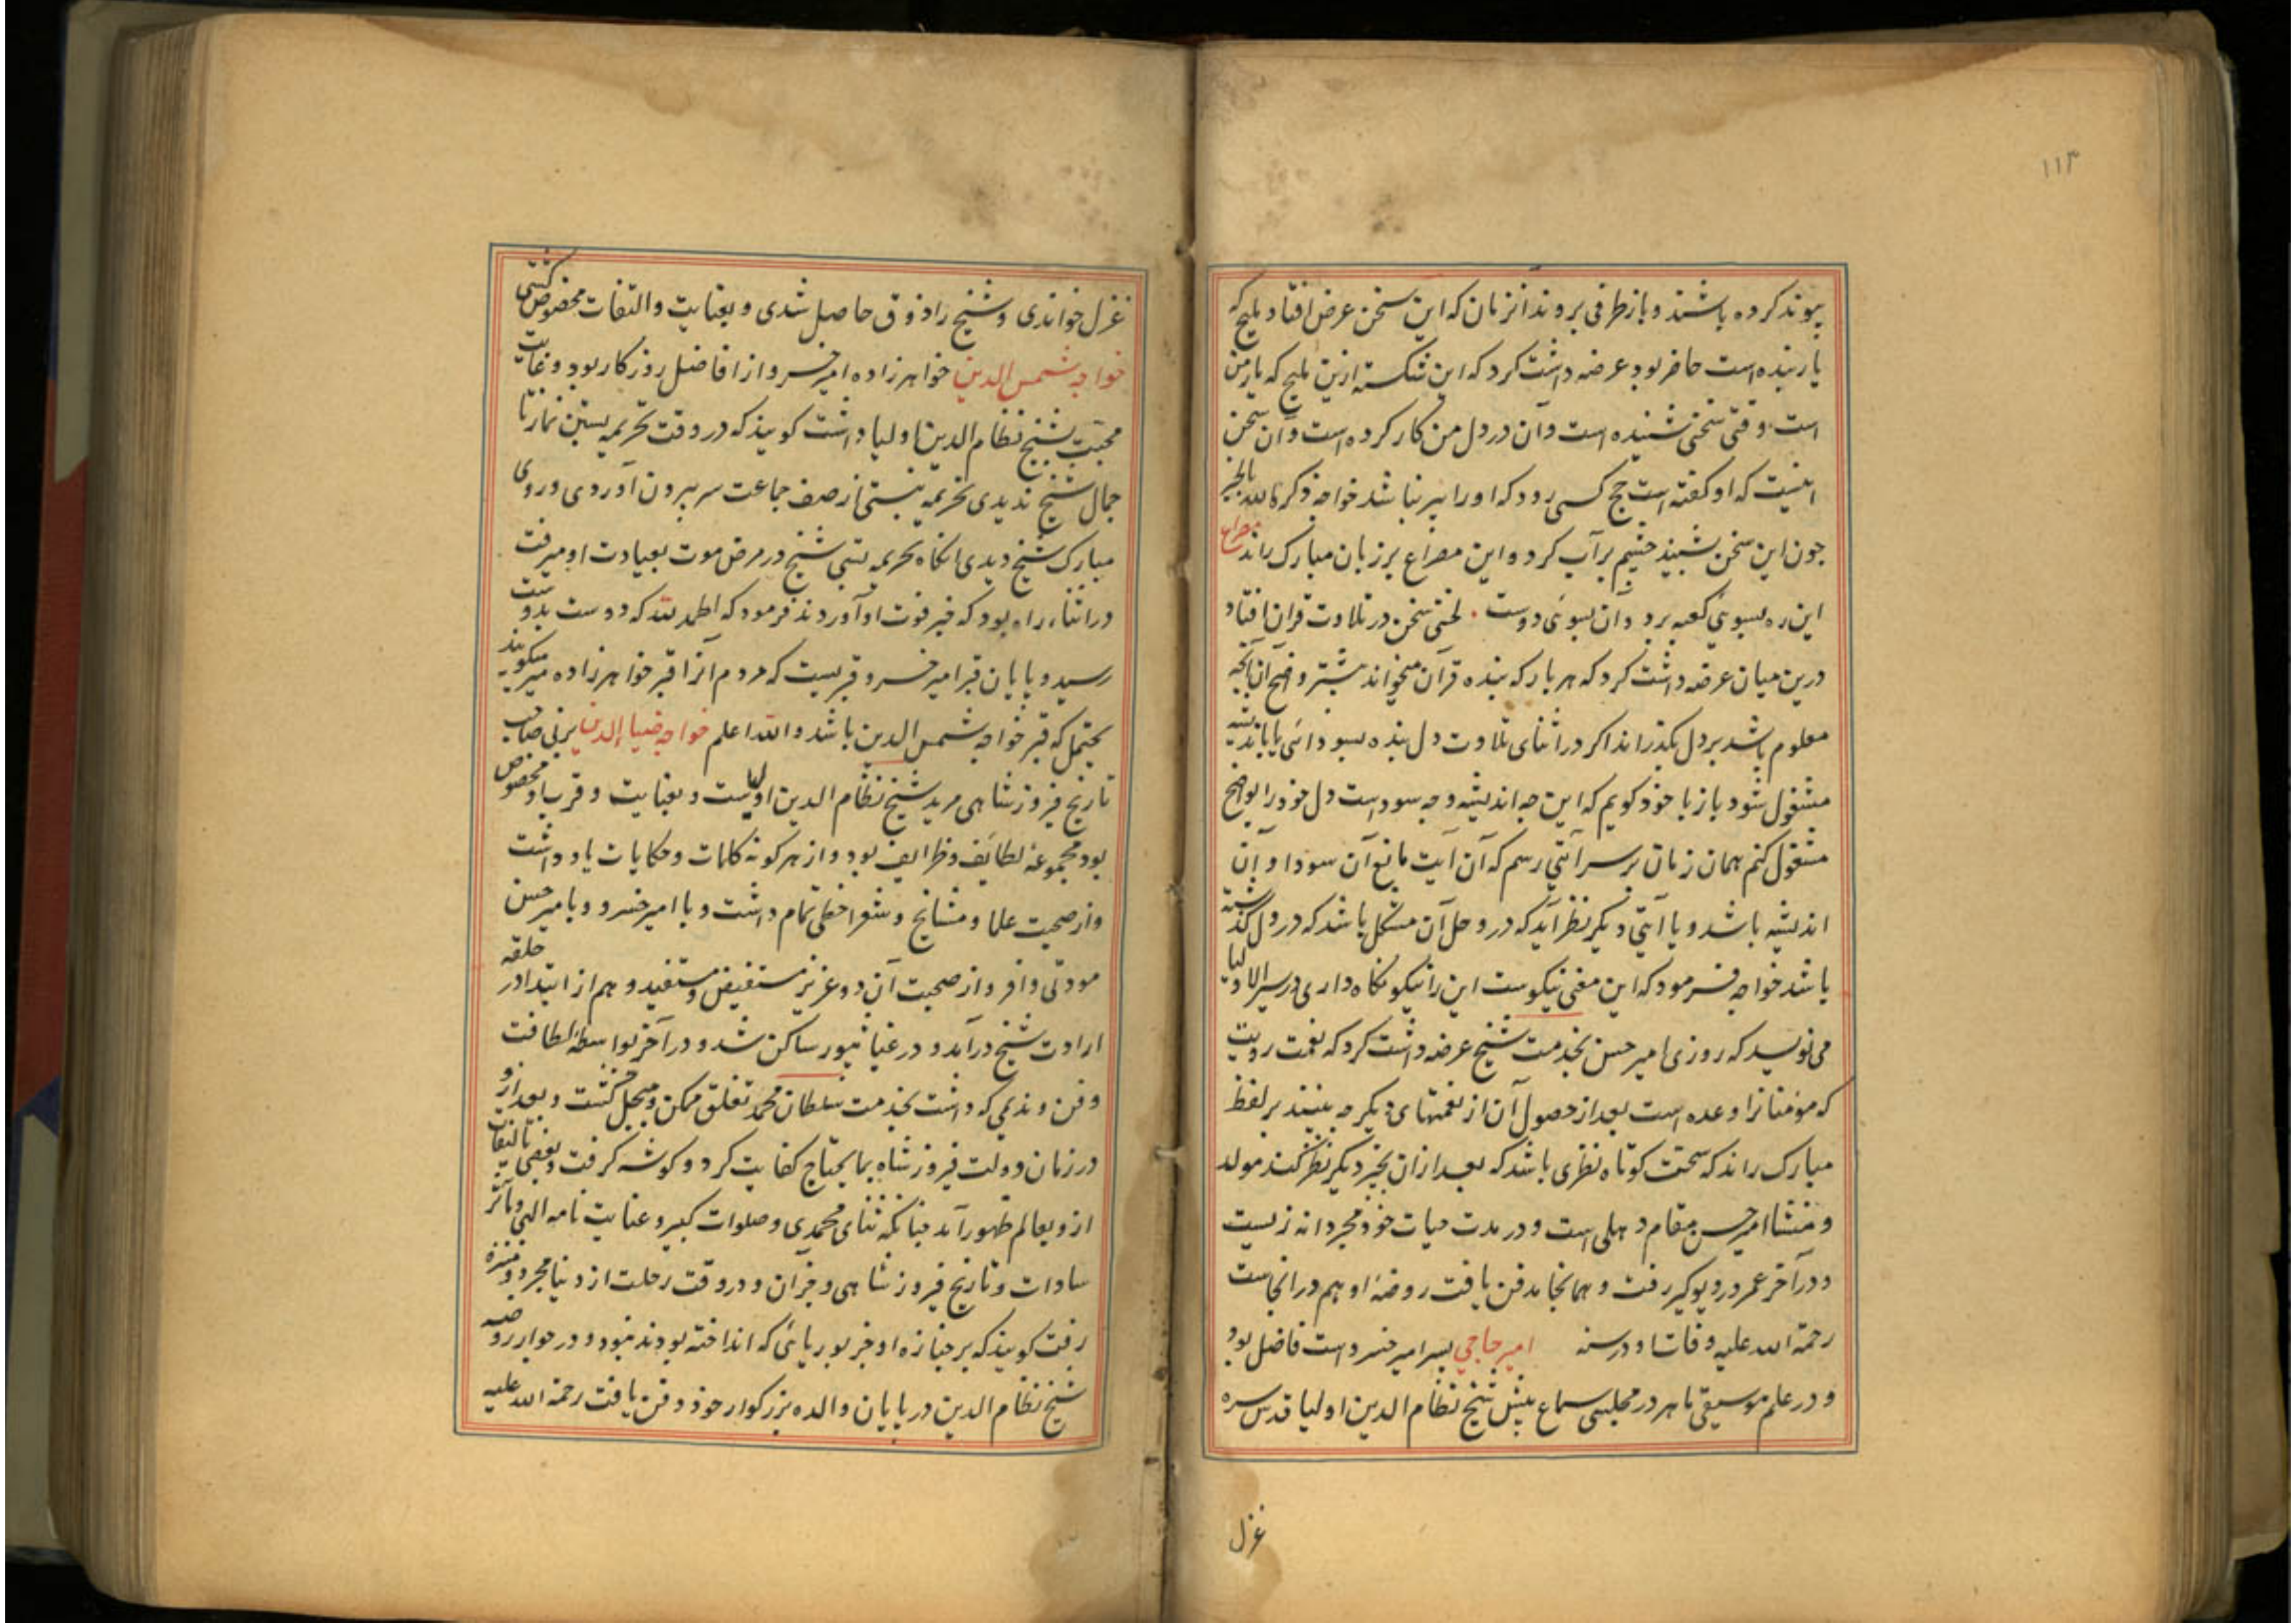 ۱۱۳
پیوند کرده باشند و باز طرفی بروند انزمان که این سخن عرض افتاد ملیح که
یار بنده است حاضر بود عرضه داشت کرد که این شکسته ازین ملیح که یار من
است وقتی سخنی شنیده است و آن در دل من کار کرده است و آن سخن
اینست که او گفته است حج کسی رود که او را پیر نباشد خواجه ذکره الله بالخیر
چون این سخن بشنید چشم پر آب کرد و این مصراع بر زبان مبارک راند مصراع
این ره بسوی کعبه برد و آن بسوی دوست لختی سخن در تلاوت قران افتاد
درین میان عرضه داشت کرد که هر بار که بنده قرآن میخواند بیشتر واضح آن آنچه
معلوم باشد بر دل بگذراند اکر در اثنای تلاوت دل بنده بسودائی یا باندیشه
مشغول شود باز با خود کویم که این چه اندیشه و چه سود است دل خود را بواضح
مشغول کنم همان زمان بر سر آیتی رسم که آن آیت مانع آن سودا و آن
اندیشه باشد و یا آیتی دیکر نظر آید که در و حل آن مشکل باشد که در دل گذشته
باشد خواجه فرمود که این معنی نیکوست این را نیکو نگاه داری در سیر الاولیا
می نویسد که روزی امیر حسن بخدمت شیخ عرضه داشت کرد که نعمت رویت
که مومنانرا وعده است بعد از حصول آن از نعمتهای دیکر چه بینند بر لفظ
مبارک راند که سخت کوتاه نظری باشد که بعد از ان بچیز دیکر نظر کنند مولد
و منشا امیر حسن مقام دهلی است و در مدت حیات خود مجردانه زیست
و در آخر عمر در دیوکیر رفت و همانجا مدفن یافت روضۀ او هم در انجاست
رحمة الله علیه وفات او در سنه امیر حاجی پسر امیر خسرو است فاضل بود
و در علم موسیقی ماهر در مجلس سماع پیش شیخ نظام الدین اولیا قدس سره
غزل
غزل خواندی و شیخ را ذوق حاصل شدی و بعنایت و التفات مخصوص گشتی
خواجه شمس الدین خواهر زاده امیر خسرو از افاضل روزکار بود و غایت
محبت بشیخ نظام الدین اولیا داشت کویند که در وقت تحریمه بستن نماز تا
جمال شیخ ندیدی تحریمه نبستی از صف جماعت سر بیرون آوردی و روی
مبارک شیخ دیدی انگاه تحریمه بستی شیخ در مرض موت بعیادت او میرفت
در اثناء راه بود که خبر فوت او آوردند فرمود که الحمد لله که دوست بدوست
رسید و پایان قبر امیر خسرو قبریست که مردم آنرا قبر خواهر زاده میر میکویند
یحتمل که قبر خواجه شمس الدین باشد والله اعلم خواجه ضیا الدین برنی صاحب
تاریخ فیروزشاهی مرید شیخ نظام الدین اولیاست و بعنایت و قرب او مخصوص
بود مجموعه لطایف و ظرایف بود و از هر کونه کلمات و حکایات یاد داشت
و از صحبت علما و مشایخ و شعرا حظی تمام داشت و با امیر خسرو و با میر حسن
مودتی وافر و از صحبت آن دو عزیز مستفیض و مستفید و هم از ابتدا در حلقه
ارادت شیخ درآمد و در غیاثپور ساکن شد و در آخر بواسطۀ لطافت
و فن ندیمی که داشت بخدمت سلطان محمد تغلق ممکن و مبجل گشت و بعد از و
در زمان دولت فیروز شاه بمایحتاج کفایت کرد و کوشه کرفت و بعضی تالیفات
از و بعالم ظهور آمد چنانکه ثنای محمدی و صلوات کبیر و عنایت نامه الهی و مآثر
سادات و تاریخ فیروز شاهی و جز آن و در وقت رحلت از دنیا مجرد و منزه
رفت کویند که بر جنازه او جز بوریائی که انداخته بودند نبود و در جوار روضه
شیخ نظام الدین در پایان والده بزرکوار خود دفن یافت رحمة الله علیه